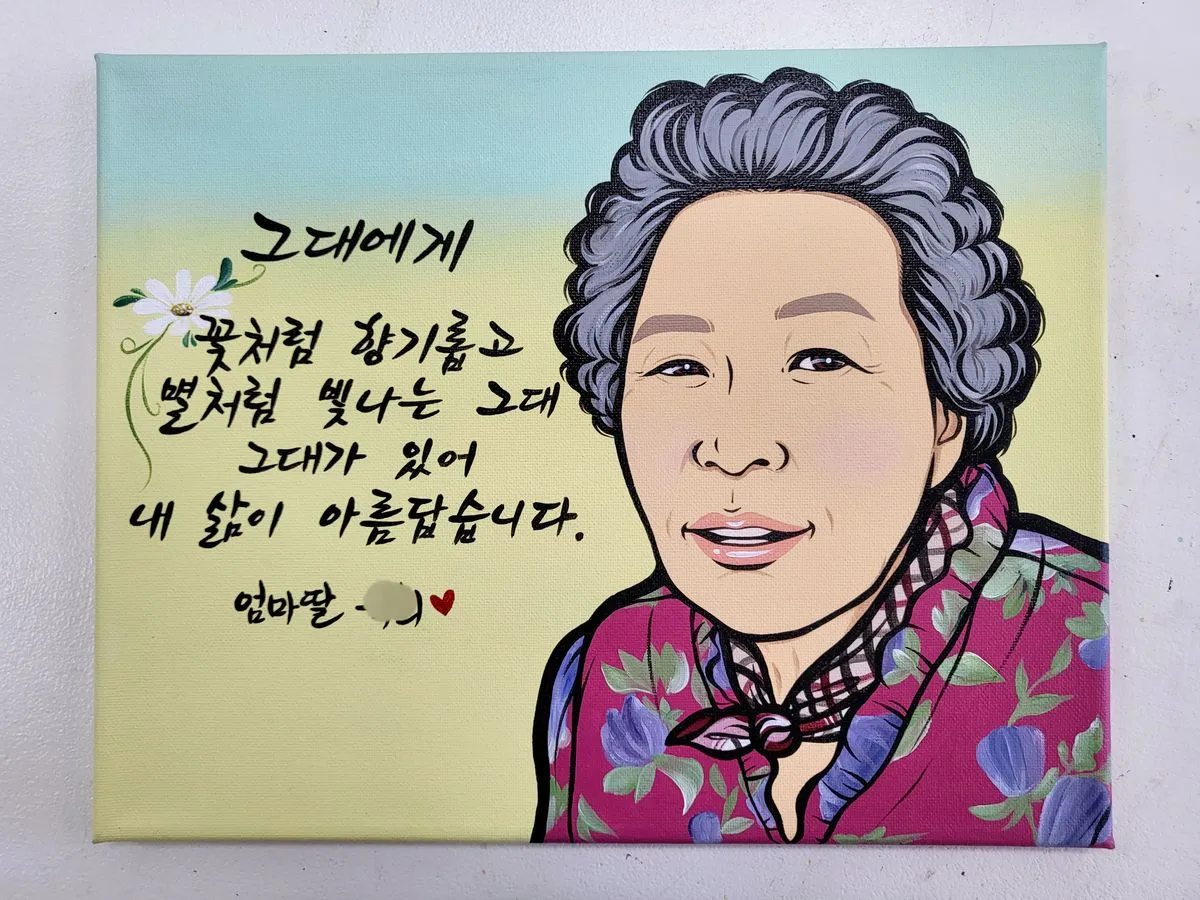 그대에게
꽃처럼 향기롭고
별처럼 빛나는 그대
그대가 있어
내 삶이 아름답습니다.
엄마딸